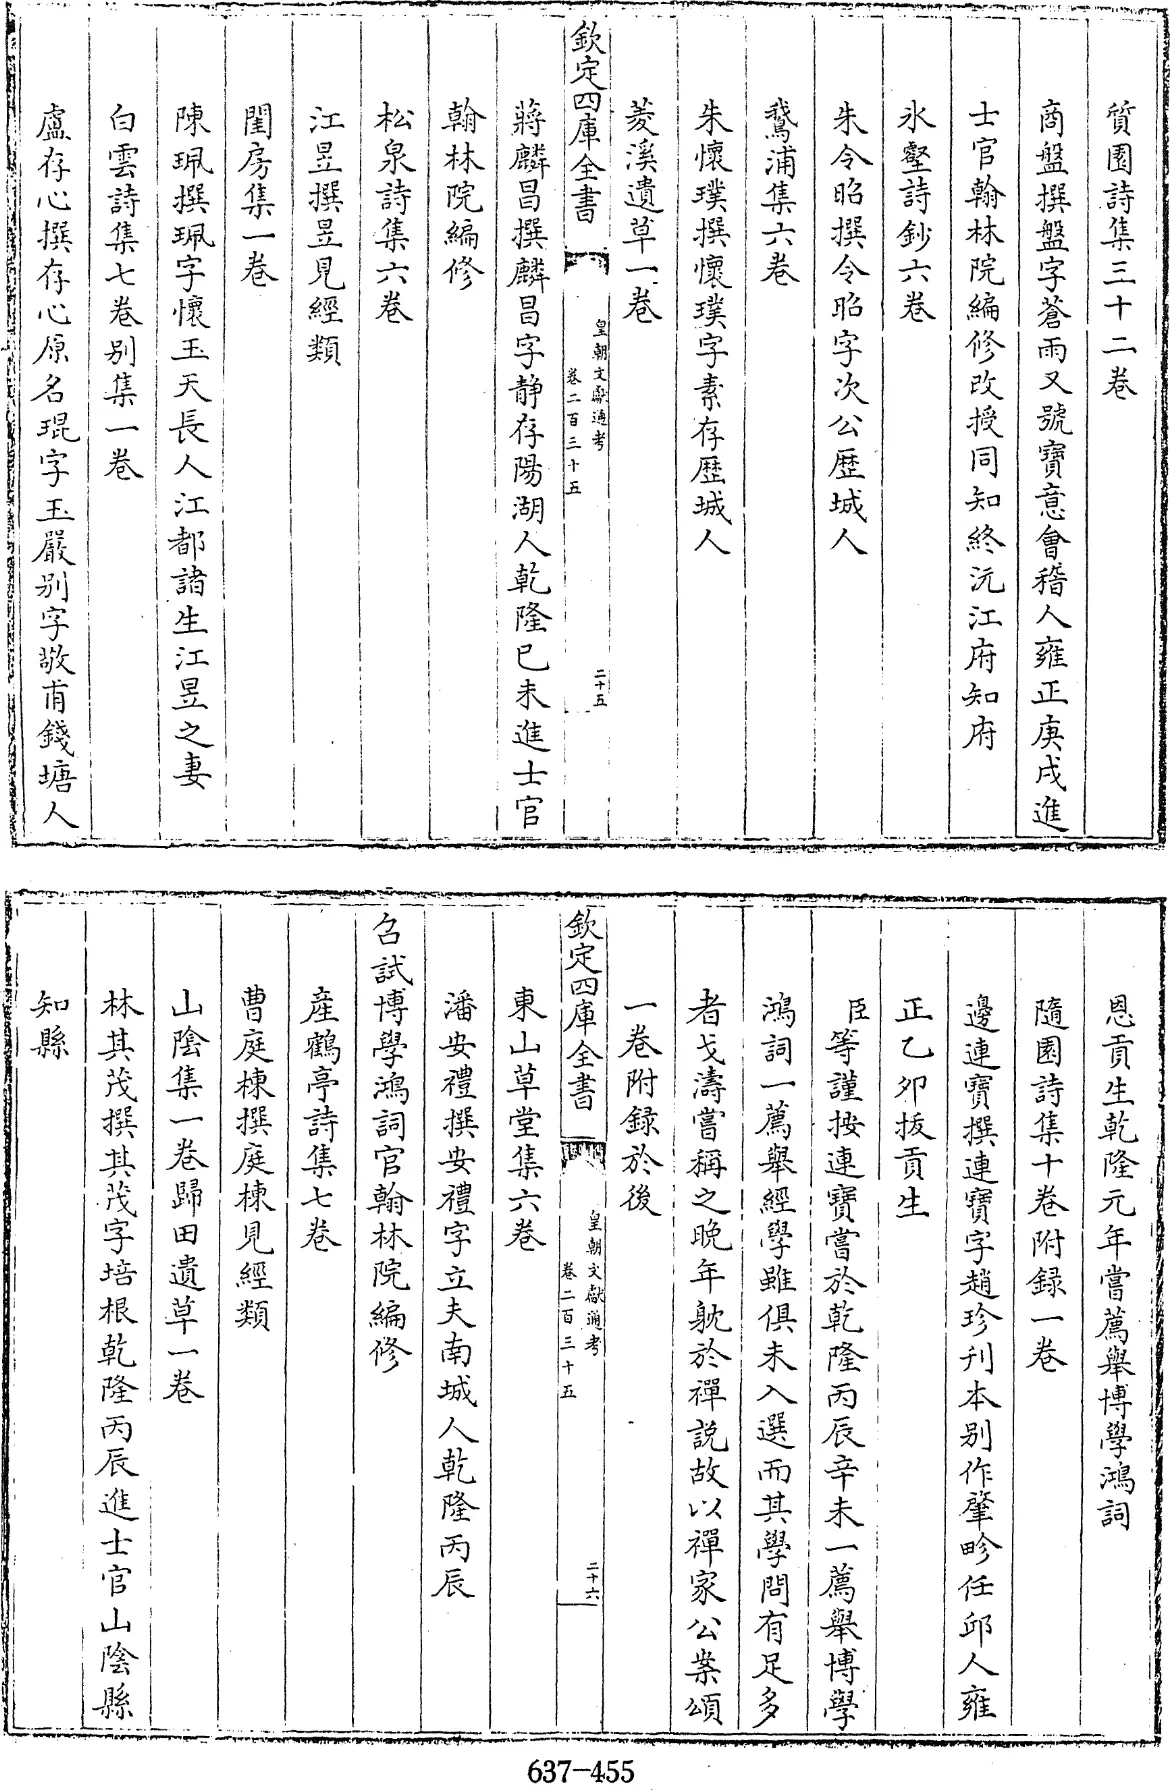 質園詩集三十二卷
商盤撰盤字蒼雨又號寶意會稽人雍正庚戌進
士官翰林院編修改授同知終沅江府知府
氷壑詩鈔六卷
朱令昭撰令昭字次公歴城人
鵞浦集六卷
朱懷璞撰懷璞字素存歴城人
菱溪遺草一卷
欽定四庫全書
皇朝文獻通考
卷二百三十五
二十五
蔣麟昌撰麟昌字静存陽湖人乾隆已未進士官
翰林院編修
松泉詩集六卷
江昱撰昱見經類
閨房集一卷
陳珮撰珮字懷玉天長人江都諸生江昱之妻
白雲詩集七卷别集一卷
盧存心撰存心原名琨字玉嚴别字敬甫錢塘人
恩貢生乾隆元年嘗薦舉博學鴻詞
隨園詩集十卷附録一卷
邊連寶撰連寶字趙珍刋本别作肇畛任邱人雍
正乙夘拔貢生
臣等謹按連寶嘗於乾隆丙辰辛未一薦舉博學
鴻詞一薦舉經學雖俱未入選而其學問有足多
者戈濤嘗稱之晚年躭於禪説故以禪家公案頌
一卷附録於後
欽定四庫全書
皇朝文獻通考
卷二百三十五
二十六
東山草堂集六卷
潘安禮撰安禮字立夫南城人乾隆丙辰
召試博學鴻詞官翰林院編修
産鶴亭詩集七卷
曹庭棟撰庭棟見經類
山陰集一卷歸田遺草一卷
林其茂撰其茂字培根乾隆丙辰進士官山陰縣
知縣
637-455